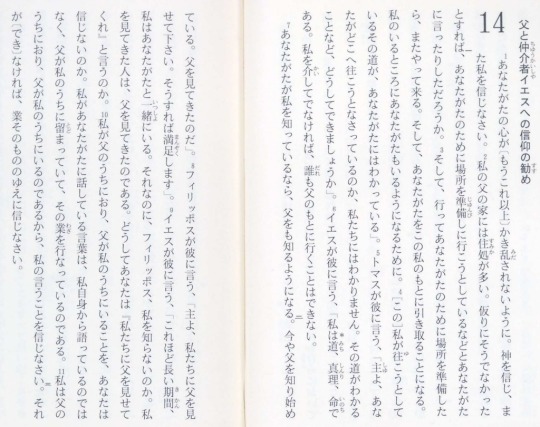 父と仲介者イエスへの信仰の勧め
14
1あなたがたの心が〔もうこれ以上〕かき乱されないように。神を信じ、ま
た私を信じなさい。2私の父の家には住処が多い。仮りにそうでなかった
とすれば、あなたがたのために場所を準備しに行こうとしているなどとあなたがた
に言ったりしただろうか。3そして、行ってあなたがたのために場所を準備した
ら、またやって来る。そして、あなたがたをこの私のもとに引き取ることになる。
私のいるところにあなたがたもいるようになるために。4〔この〕私が往こうとして
いるその道が、あなたがたにはわかっている」。5トマスが彼に言う、「主よ、あな
たがどこへ往こうとなさっているのか、私たちにはわかりません。その道がわかる
ことなど、どうしてできましょうか」。6イエスが彼に言う、「私は道、真理、命で
ある。私を介してでなければ、誰も父のもとに行くことはできない。
7あなたがたが私を知っているなら、父をも知るようになる。今や父を知り始め
ている。父を見てきたのだ」。8フィリッポスが彼に言う、「主よ、私たちに父を見
せて下さい。そうすれば満足します」。9イエスが彼に言う、「これほど長い期間、
私はあなたがたと一緒にいる。それなのに、フィリッポス、私を知らないのか。私
を見てきた人は、父を見てきたのである。どうしてあなたは『私たちに父を見せて
くれ』と言うのか。10私が父のうちにおり、父が私のうちにいることを、あなたは
信じないのか。私があなたがたに話している言葉は、私自身から語っているのでは
なく、父が私のうちに留まっていて、その業を行なっているのである。11私は父の
うちにおり、父が私のうちにいるのであるから、私の言うことを信じなさい。それ
が〔でき〕なければ、業そのもののゆえに信じなさい。